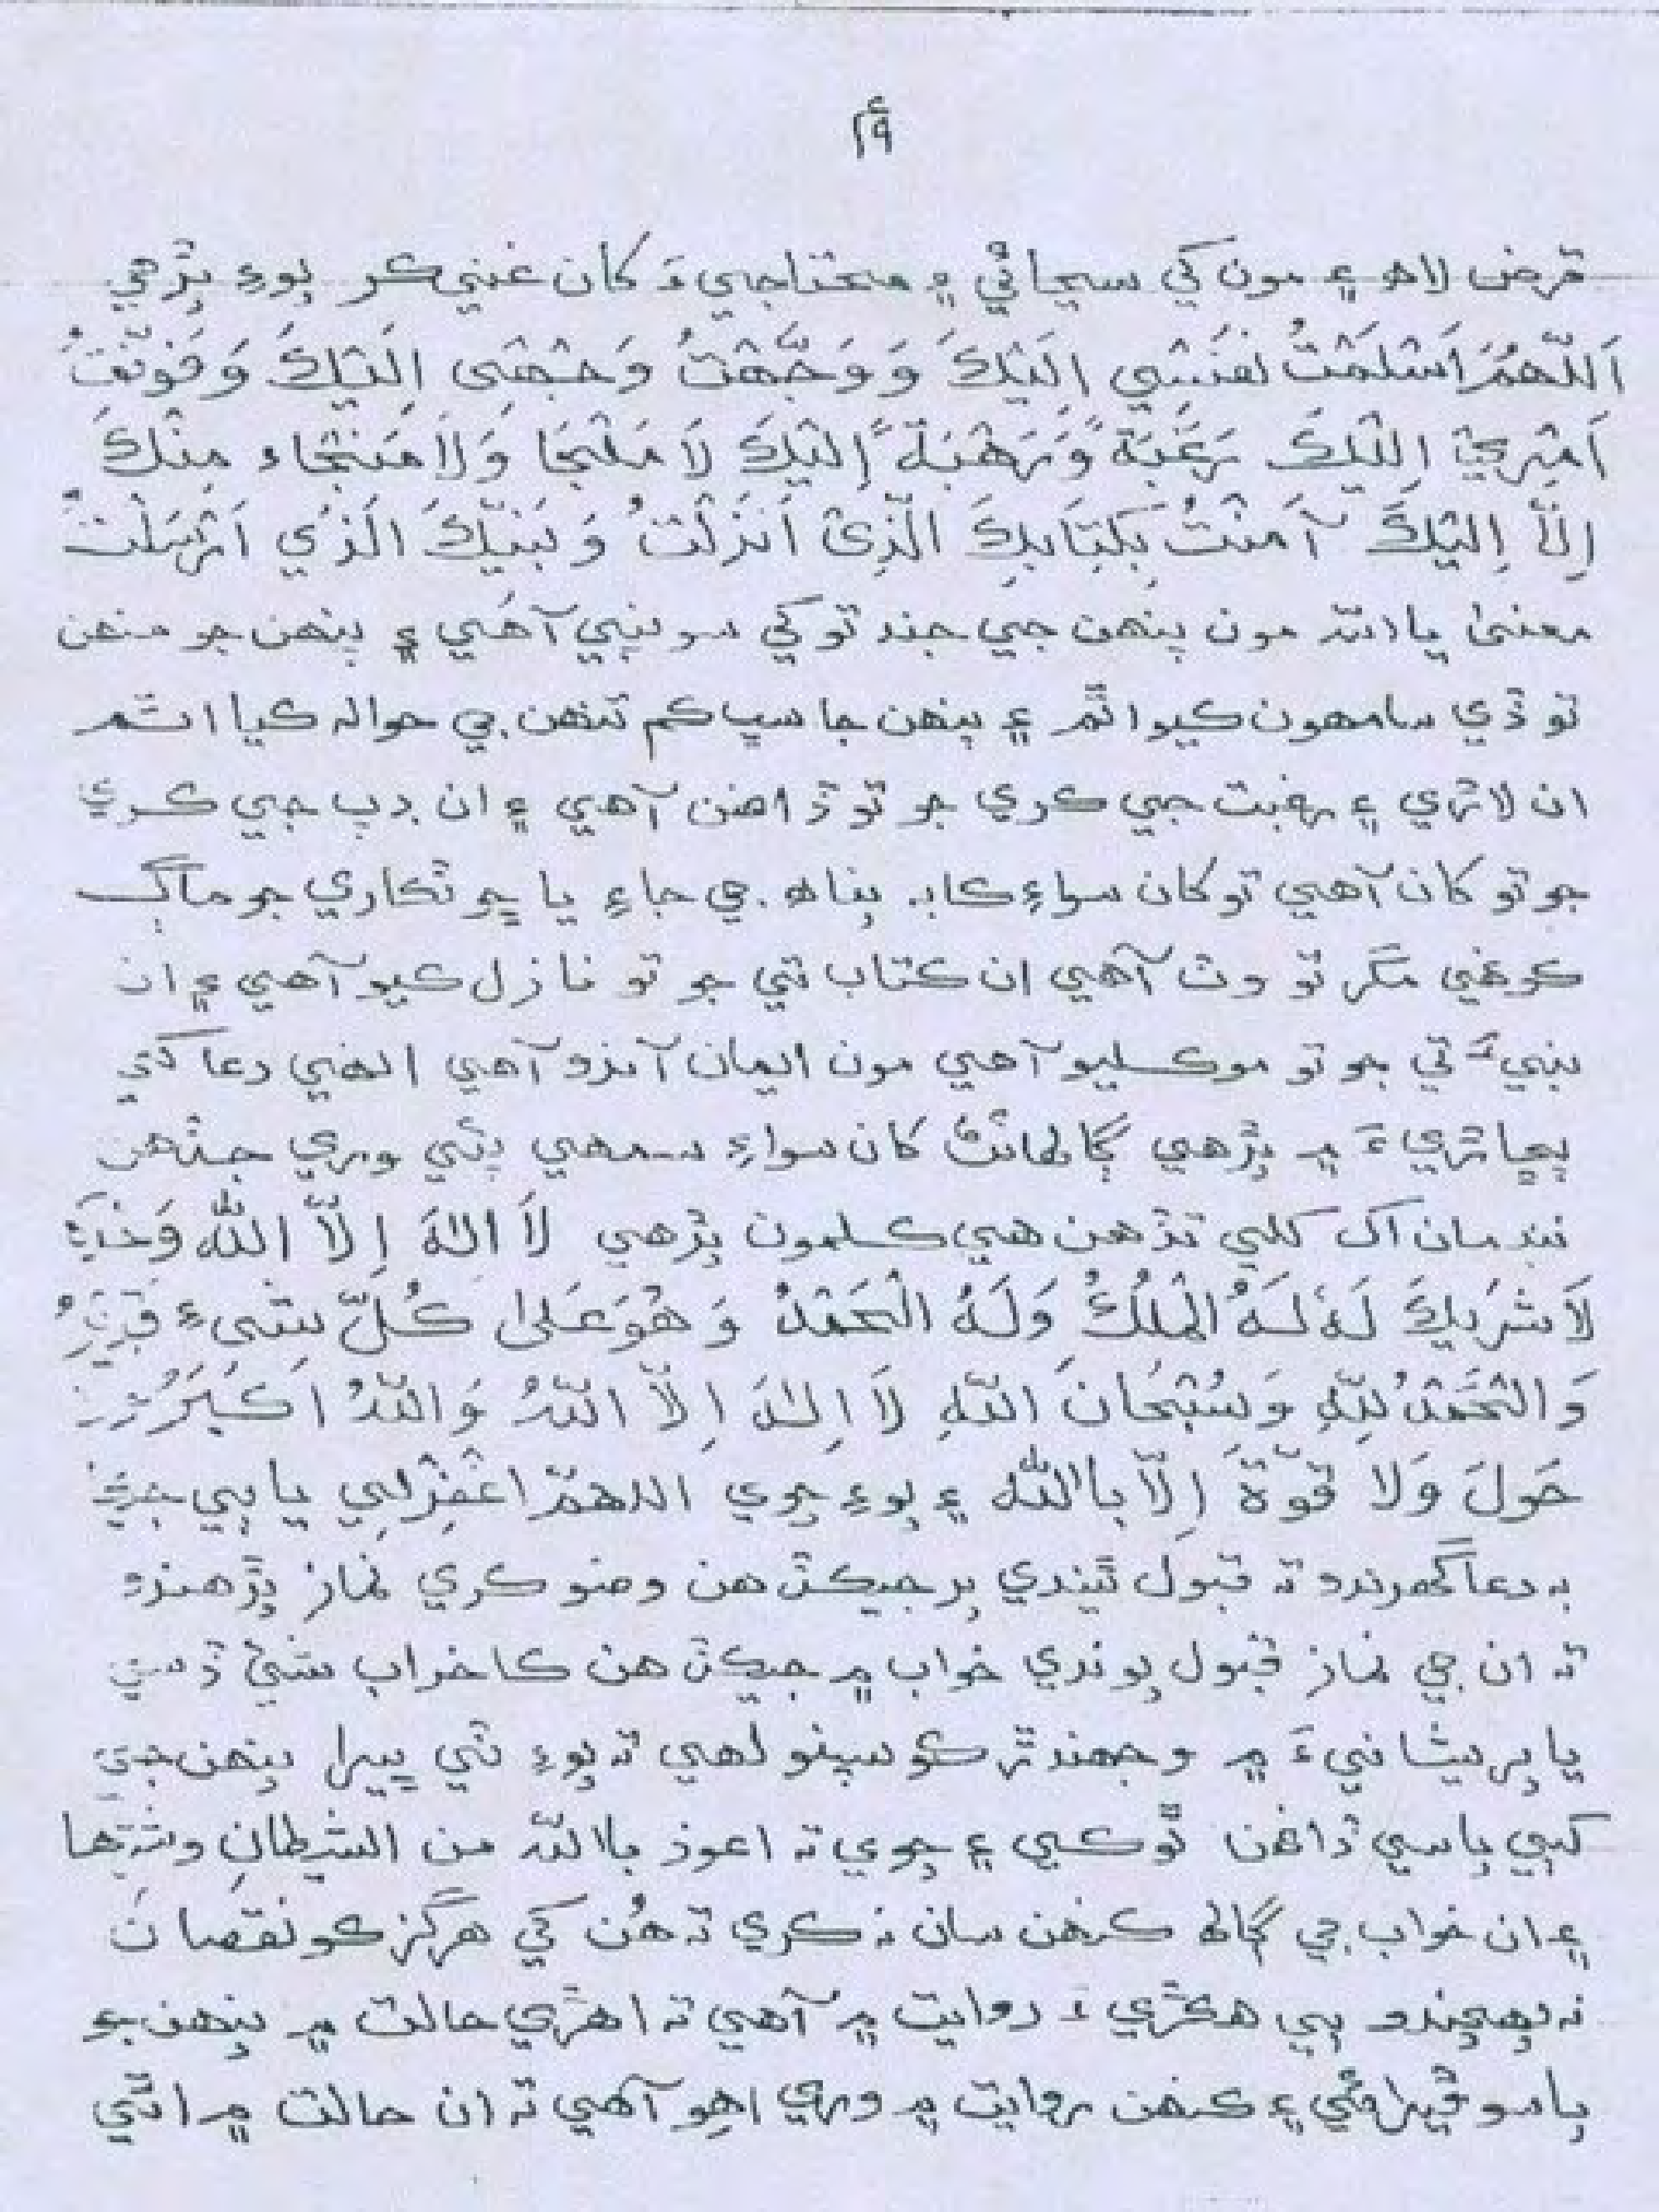 ٤٩
قرض لاھ ۽ مون کي سڀاڻي ۽ محتاجيءَ کان غني کر پوءِ پڙهي
اَللّٰهُمَّ اَسْلَمْتُ نَفْسِي اِلَيْكَ وَ وَجَّهْتُ وَجْهِى اِلَيْكَ وَ فَوَّضْتُ
اَمْرِيْ اِلَيْكَ رَغْبَةً وَّرَهْبَةً اِلَيْكَ لَا مَلْجَا وَلَا مَنْجَاء مِنْكَ
اِلَّا اِلَيْكَ آمَنْتُ بِكِتَابِكَ الَّذِىْ اَنْزَلْتَ وَ نَبِيِّكَ الَّذِي اَرْسَلْتَ
معنىٰ يا الله مون پنهن جي جند توکي سونپي آهي ۽ پنهن جو منهن
تو ڏي سامهون کيو اٿم ۽ پنهن جا سڀ کم تنهن جي حوالہ کيا اٿم
ان لاڙي ۽ رغبت جي کري جو تو ڏاهن آهي ۽ ان ڊپ جي کري
جو تو کان آهي تو کان سواءِ کا بہ پناھ جي جاءِ يا ڇوٽکاري جو ماڳ
کونهي مگر تو وٽ آهي ان کتاب تي جو تو نازل کيو آهي ۽ ان
نبيﷺ تي جو تو موکليو آهي مون ايمان آندو آهي انهي دعا کي
پڇاڙيءَ ۾ پڙهي ڳالهائڻ کان سواءِ سمهي پئي وري جڏهن
ننڊ مان اک کلي تڏهن هي کلمون پڙهي لَا اِلٰهَ اِلَّا اللهُ وَحْدَهٗ
لَا شَرِيكَ لَهٗ لَهُ الْمُلْكُ وَلَهُ الْحَمْدُ وَ هُوَ عَلىٰ كُلِّ شَىءٍ قَدِيْرُ
وَ الْحَمْدُ لِلّٰهِ وَ سُبْحَانَ اللهِ لَا اِلٰهَ اِلَّا اللهُ وَاللهُ اَكْبَرُ
حَولَ وَلَا قُوَّةَ اِلَّا باللهِ ۽ پوءِ چوي اللهمّ اغْفِرْلِي يا ٻي جيڪي
بہ دعا گهرندو تہ قبول ٿيندي پر جيکڏهن وضو کري نماز پڙهندو
تہ ان جي نماز قبول پوندي خواب ۾ جيکڏهن کا خراب شئي ڏسي
يا پريشانيءَ ۾ وجهندڙ کو سپنو لهي تہ پوءِ ٽي ڀيرا پنهن جي
کٻي پاسي ڏاهن ٿوکي ۽ چوي تہ اعوذ باالله من الشيطانِ وشرّها
۽ ان خواب جي ڳالھ کنهن سان نہ کري تہ هُن کي هرگز کو نقصان
نہ پهچندو ٻي هکڙيءَ روايت ۾ آهي تہ اهڙي حالت ۾ پنهن جو
پاسو ڦيرائي ۽ کنهن روايت ۾ وري اهو آهي تہ ان حالت ۾ اٿي